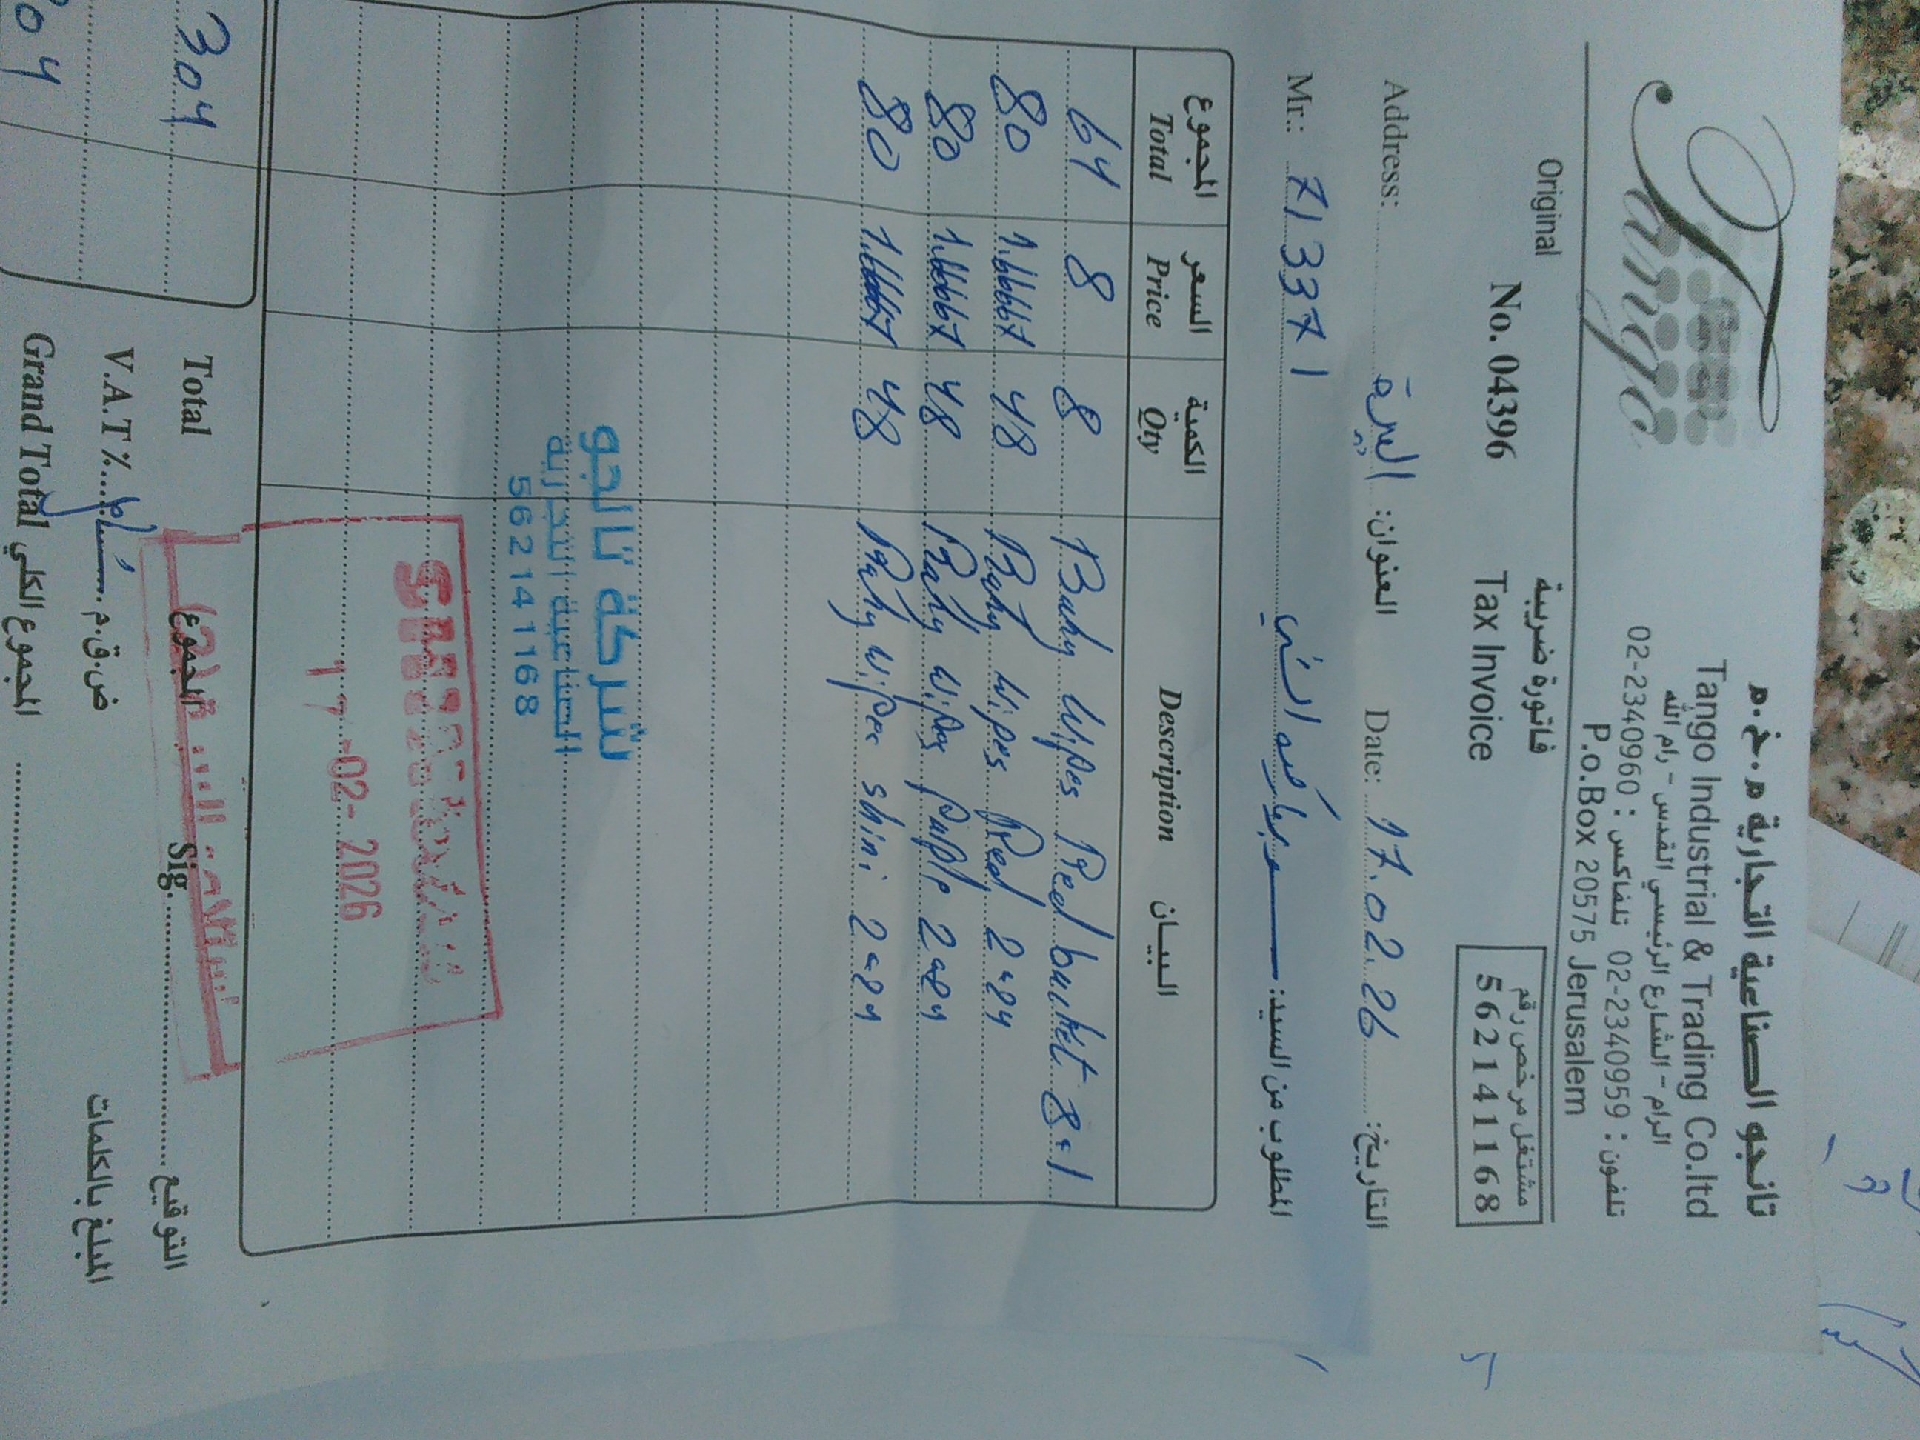 Tango
تانجو الصناعية التجارية م.خ.م
Tango Industrial & Trading Co.ltd
الرام - الشارع الرئيسي القدس - رام الله
تلفون: 02-2340959 تلفاكس: 02-2340960
P.o.Box 20575 Jerusalem
Original
فاتورة ضريبية
مشتغل مرخص رقم
No. 04396
Tax Invoice
562141168
Address: البيرة العنوان: Date: 17.02.26 التاريخ:
Mr.: 713371 المطلوب من السيد:
المجموع السعر الكمية
Total Price Qty Description البيـان
64 8 8 Baby Wipes Red bucket 8*1
80 1.66667 48 Baby Wipes Red 2*24
80 1.66667 48 Baby Wipes Puple 2*24
80 1.66667 48 Baby Wipes shini 2*24
شركة تانجو
الصناعية التجارية
562141168
17-02-2026
304 Total المجموع Sig. التوقيع
V.A.T % ض.ق.م. المبلغ بالكلمات
304 Grand Total المجموع الكلي